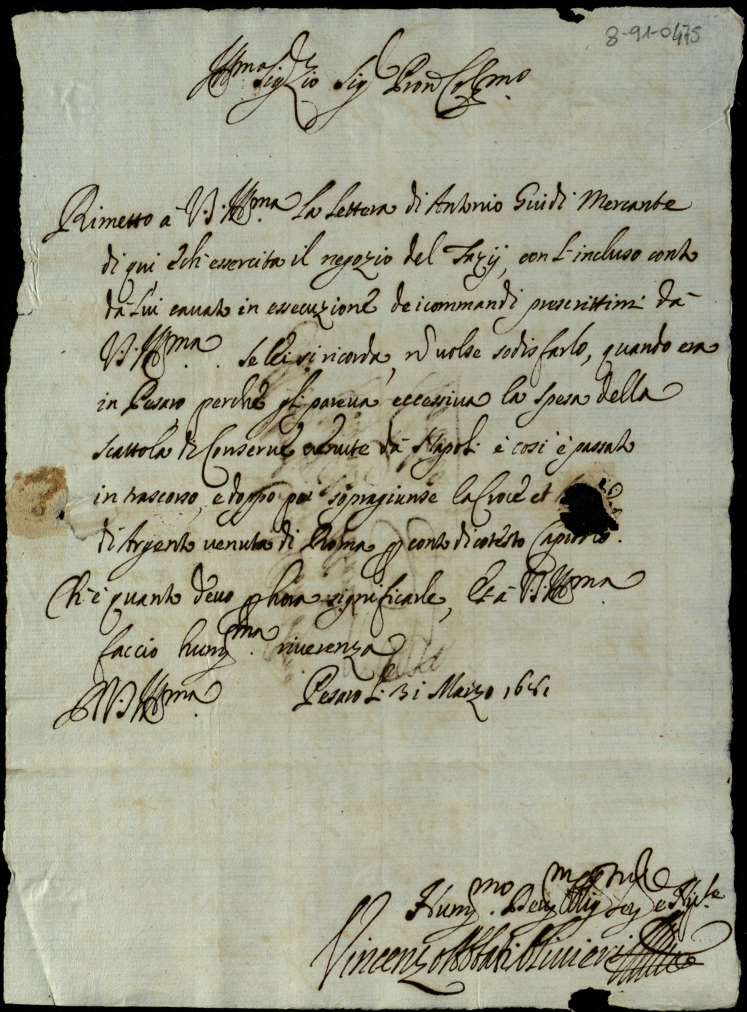 8-91-0475
Ill:ma Sig: Zio Sig: Pron Col:mo
Rimetto à V.S. Ill:ma la lettera di Antonio Guidi Mercante
di qui, ch'essercita il negozio del Fazij, con l'incluso conto
dà lui cavato in essecuzione dei commandi prescrittimi dà
V.S. Ill:ma. Se lei si ricorda, volse sodisfarlo, quando era
in Pesaro perche gli pareva eccessiva la spesa della
scattola di Conserve venute dà Napoli è così è passato
in trascorso, e doppo poi sopragiunse la Croce et
di Argento venuta di Roma conto di cotesto
Ch'è quanto devo p hora significarle, Et à V.S. Ill:ma
faccio hum:ma riverenza
D V.S. Ill:ma Pesaro li 31 Marzo 1681
Hum:mo Ser:e
Vincenzo Abbati Olivieri